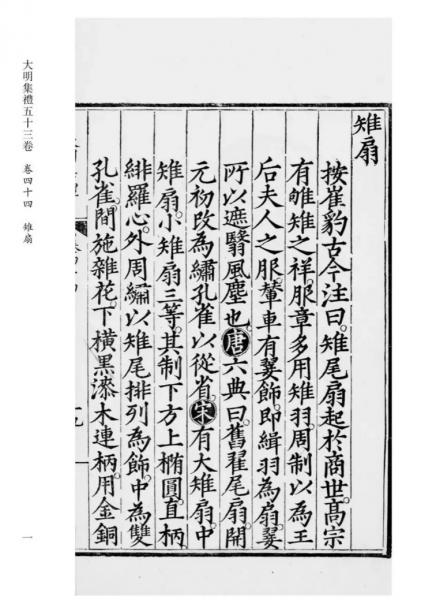 雉扇
按崔豹古今注曰。雉尾扇起於商世。高宗
有雊雉之祥。服章多用雉羽。周制以為王
后夫人之服。輦車有翣飾。即緝羽為扇翣
所以遮翳風塵也。唐六典曰。舊翟尾扇。開
元初改為繡孔雀以從省。宋有大雉扇。中
雉扇。小雉扇三等。其制下方上橢圓。直柄
緋羅心。外周繡以雉尾排列為飾。中為雙
孔雀。間施雜花。下橫黑漆木連柄。用金銅
大明集禮五十三卷 卷四十四 雉扇
一